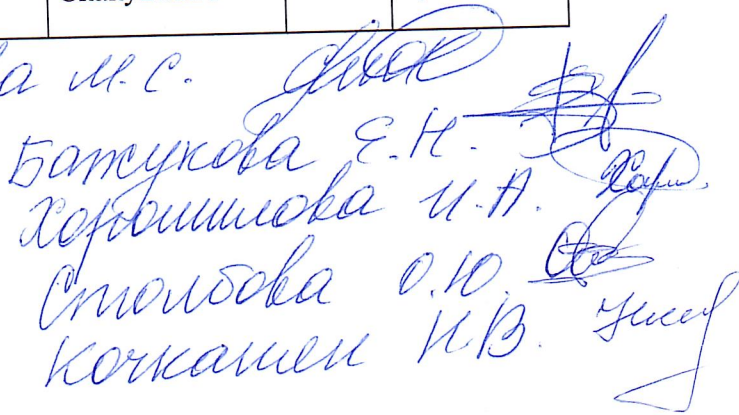 М.С.
Бажукова Е.Н.
Хорошилова И.А.
Столбова О.Ю.
Кочкашен Н.В.